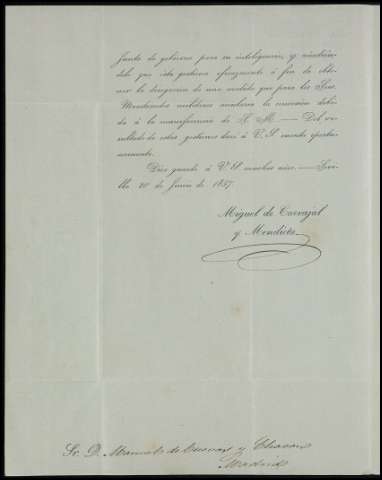 Junta de gobierno para su inteligencia, y añadien-
dole que esta gestiona eficazmente á fin de obte-
ner la derogacion de una medida que priva los Sres.
Maestrantes militares
á la munificencia de S. M. — Del re-
sultado de estas gestiones daré á V. S. cuenta oportu-
namente.
Dios guarde á V. S. muchos años. — Sevi-
lla 20 de Junio de 1857.
Miguel de Carvajal
y Mendieta
Sr. D. Manuel de y
Madrid